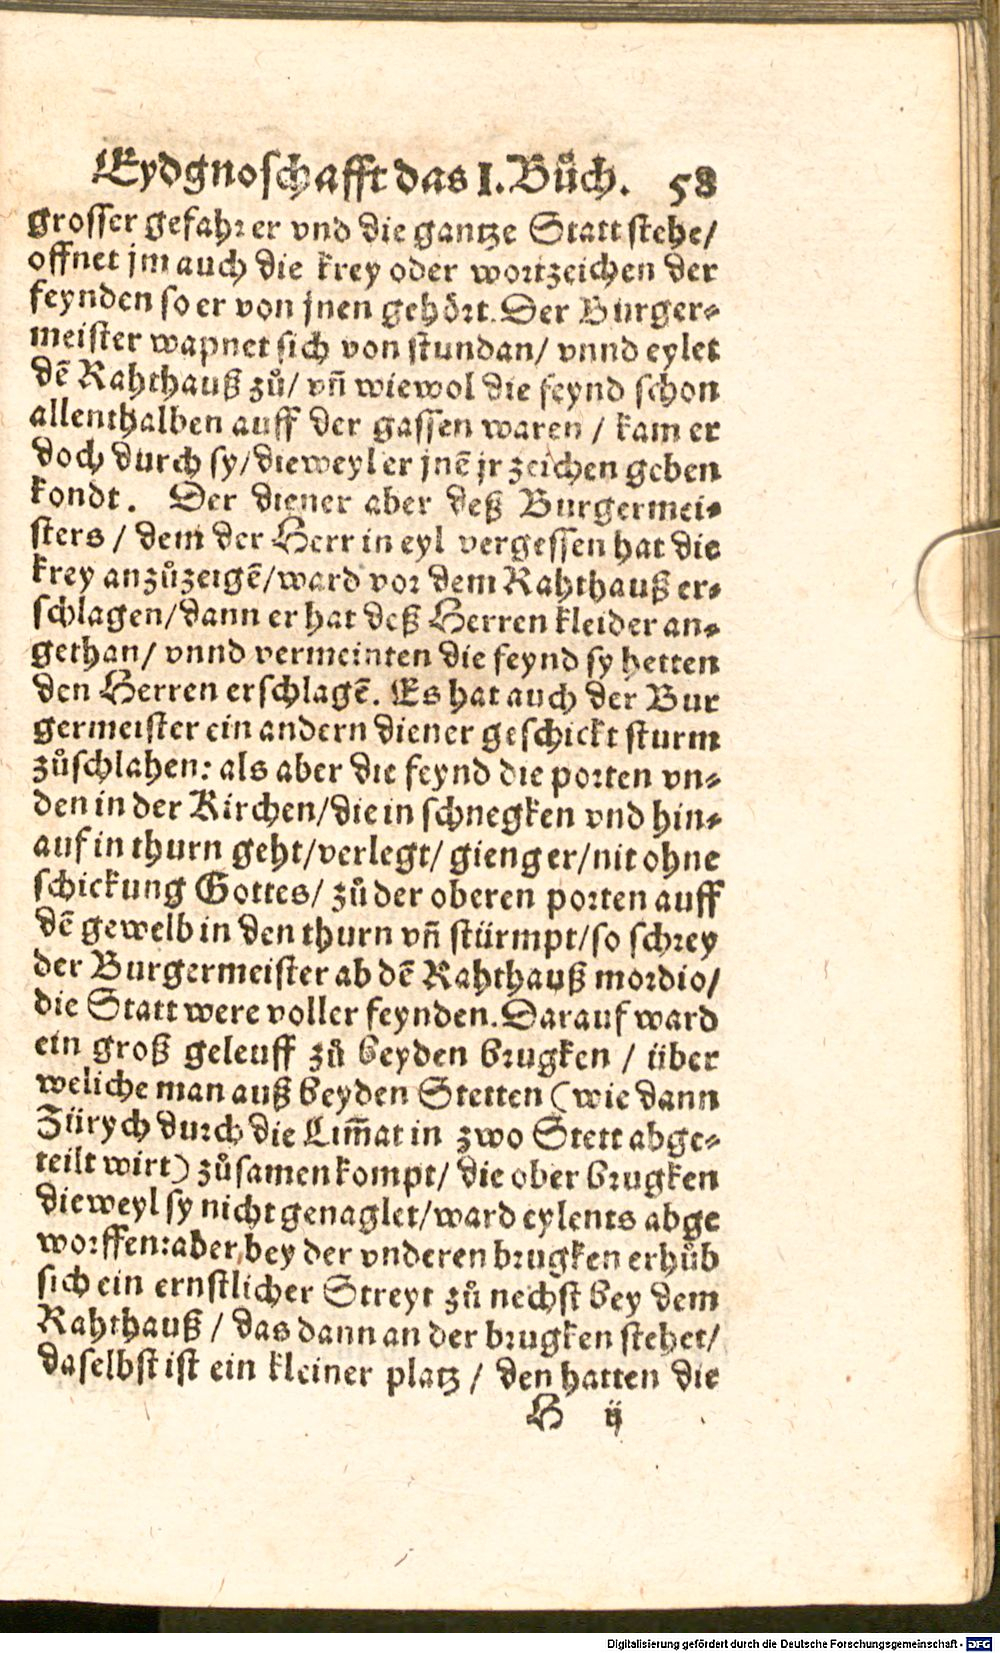 Eydgnoschafft das I. Bůch. 58
grosser gefahr er vnd die gantze Statt stehe/
offnet jm auch die krey oder wortzeichen der
feynden so er von jnen gehört. Der Burger-
meister wapnet sich von stundan/ vnnd eylet
dẽ Rahthauß zů/ vñ wiewol die feynd schon
allenthalben auff der gassen waren / kam er
doch durch sy/ dieweyl er jnẽ jr zeichen geben
kondt. Der diener aber deß Burgermei-
sters / dem der Herr in eyl vergessen hat die
krey anzůzeigẽ/ ward vor dem Rahthauß er-
schlagen/ dann er hat deß Herren kleider an-
gethan/ vnnd vermeinten die feynd sy hetten
den Herren erschlagẽ. Es hat auch der Bur
germeister ein andern diener geschickt sturm
zůschlahen: als aber die feynd die porten vn-
den in der Kirchen/ die in schnegken vnd hin-
auf in thurn geht/ verlegt/ gieng er/ nit ohne
schickung Gottes/ zů der oberen porten auff
dẽ gewelb in den thurn vñ stürmpt/ so schrey
der Burgermeister ab dẽ Rahthauß mordio/
die Statt were voller feynden. Darauf ward
ein groß geleuff zů beyden brugken / über
weliche man auß beyden Stetten (wie dann
Zürych durch die Lim̃at in zwo Stett abge-
teilt wirt) zůsamen kompt/ die ober brugken
dieweyl sy nicht genaglet/ ward eylents abge
worffen: aber bey der vnderen brugken erhůb
sich ein ernstlicher Streyt zů nechst bey dem
Rahthauß / das dann an der brugken stehet/
daselbst ist ein kleiner platz / den hatten die
H ij
Digitalisierung gefördert durch die Deutsche Forschungsgemeinschaft - DFG